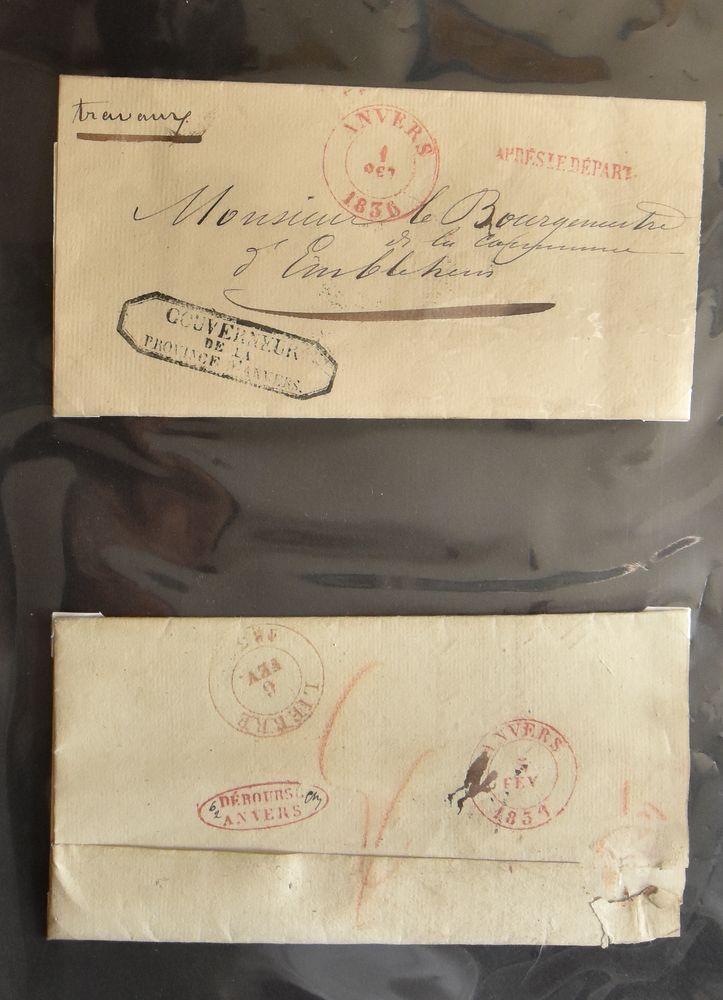 travaux
ANVERS
1
OCT
1836
APRÈS LE DÉPART
Monsieur le Bourgemestre
de la commune
d'Emblehem
GOUVERNEUR
DE LA
PROVINCE D'ANVERS.
183
FEV
6
LIERRE
ANVERS
5
FEV
DÉBOURSÉ
ANVERS